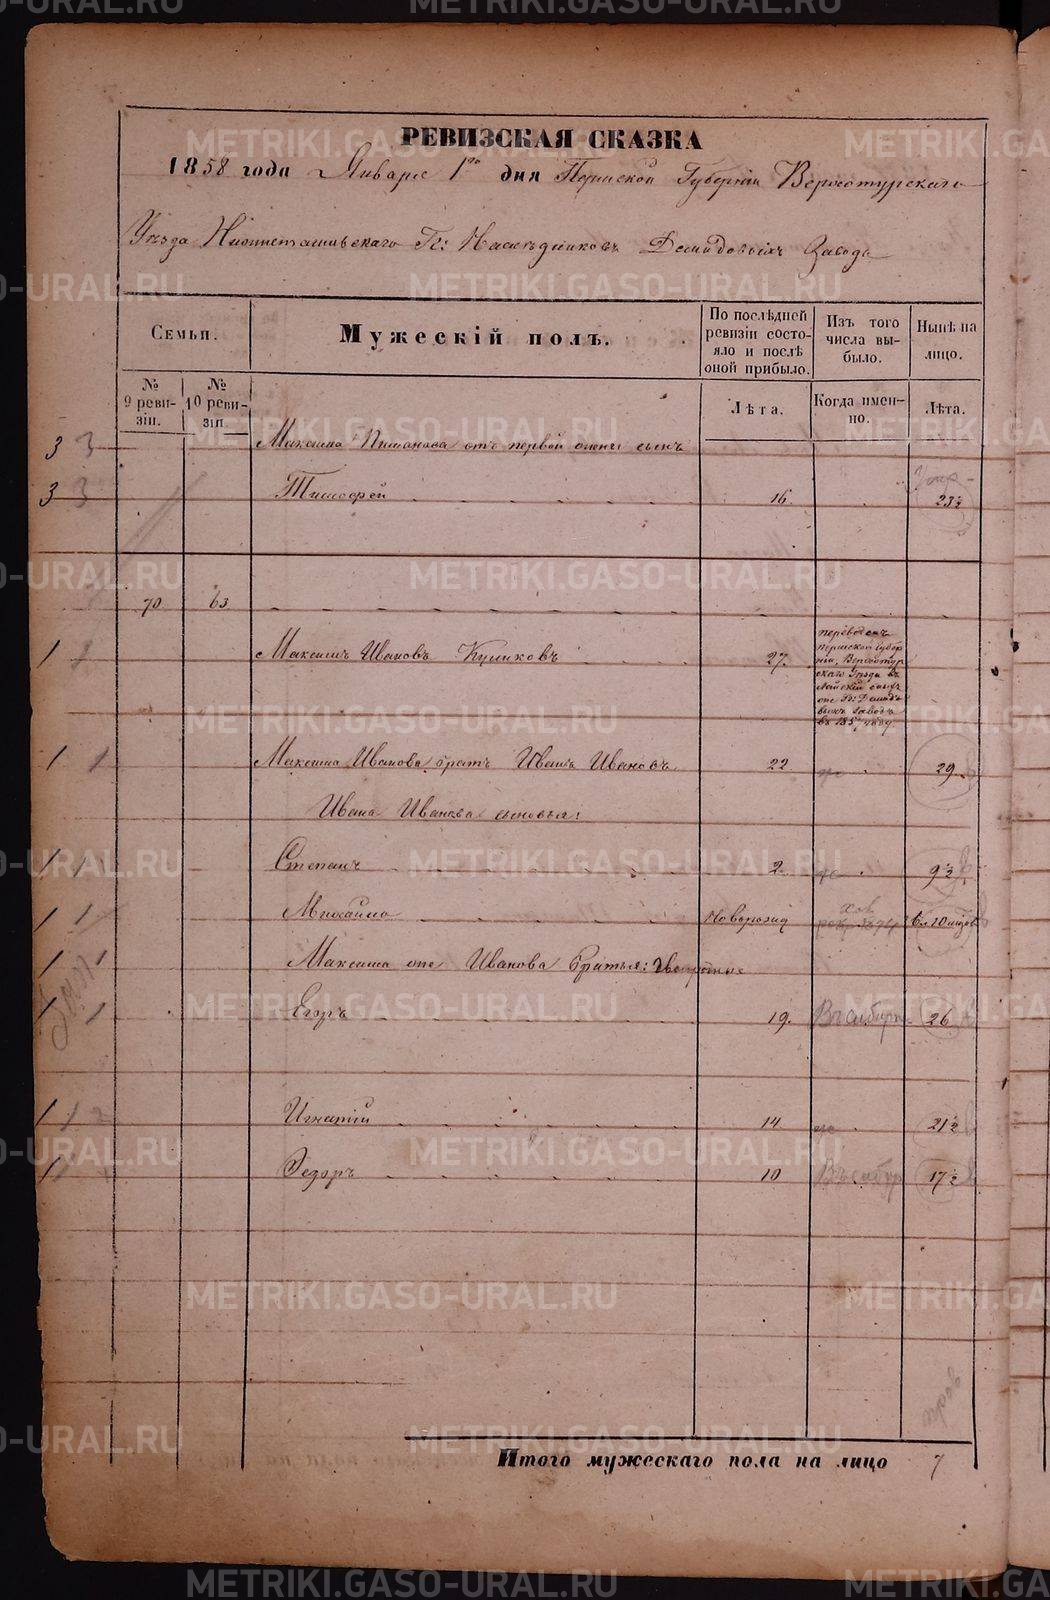 METRIKI.GASO-URAL.RU
РЕВИЗСКАЯ СКАЗКА
1858 года Января 1го дня Пермской Губерніи Верхотурскаго
Уѣзда Нижнетагильскаго Гг: Наслѣдниковъ Демидовыхъ Завода
Семьи.
Мужескій полъ.
По послѣдней ревизіи состояло и послѣ оной прибыло.
Изъ того числа выбыло.
Нынѣ на лицо.
№ 9 ревизіи.
№ 10 ревизіи
Лѣта.
Когда именно.
Лѣта.
3 3 Максима отъ первой жены сынъ
3 3 Тимофей 16 23½
70 63
1 1 Максимъ Ивановъ Куликовъ 27.
переведенъ
Пермской Губер
ніи, Верхотур
скаго Уѣзда въ
1 1 Максима Иванова братъ Иванъ Ивановъ 22 29
Ивана Иванова сыновья:
1 1 Степанъ 2 9½
1 1 Михайло Новорожд
1 1 Максима же Иванова братья:
1 1 Егоръ 19. 26
1 1 2 Игнатій 14 21½
1 Ѳедоръ 10 17½
Итого мужескаго пола на лицо 7